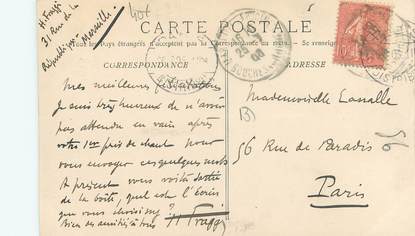 H. Fraggi
31 Rue de la
République
Marseille
406
CARTE POSTALE
Tous les Pays étrangers n'acceptent pas la Correspondance au
CORRESPONDANCE
ADRESSE
Mes meilleures
Je suis très heureux de n'avoir
pas attendu en vain après
votre 1er prix de chant pour
vous envoyer ces quelques mots
A présent vous voilà sortie
de la boîte, quel est l'écrin
que vous choisirez ?
Bien des amitiés à tous H Fraggi
Mademoiselle Lassalle
B
56 Rue de Paradis
Paris